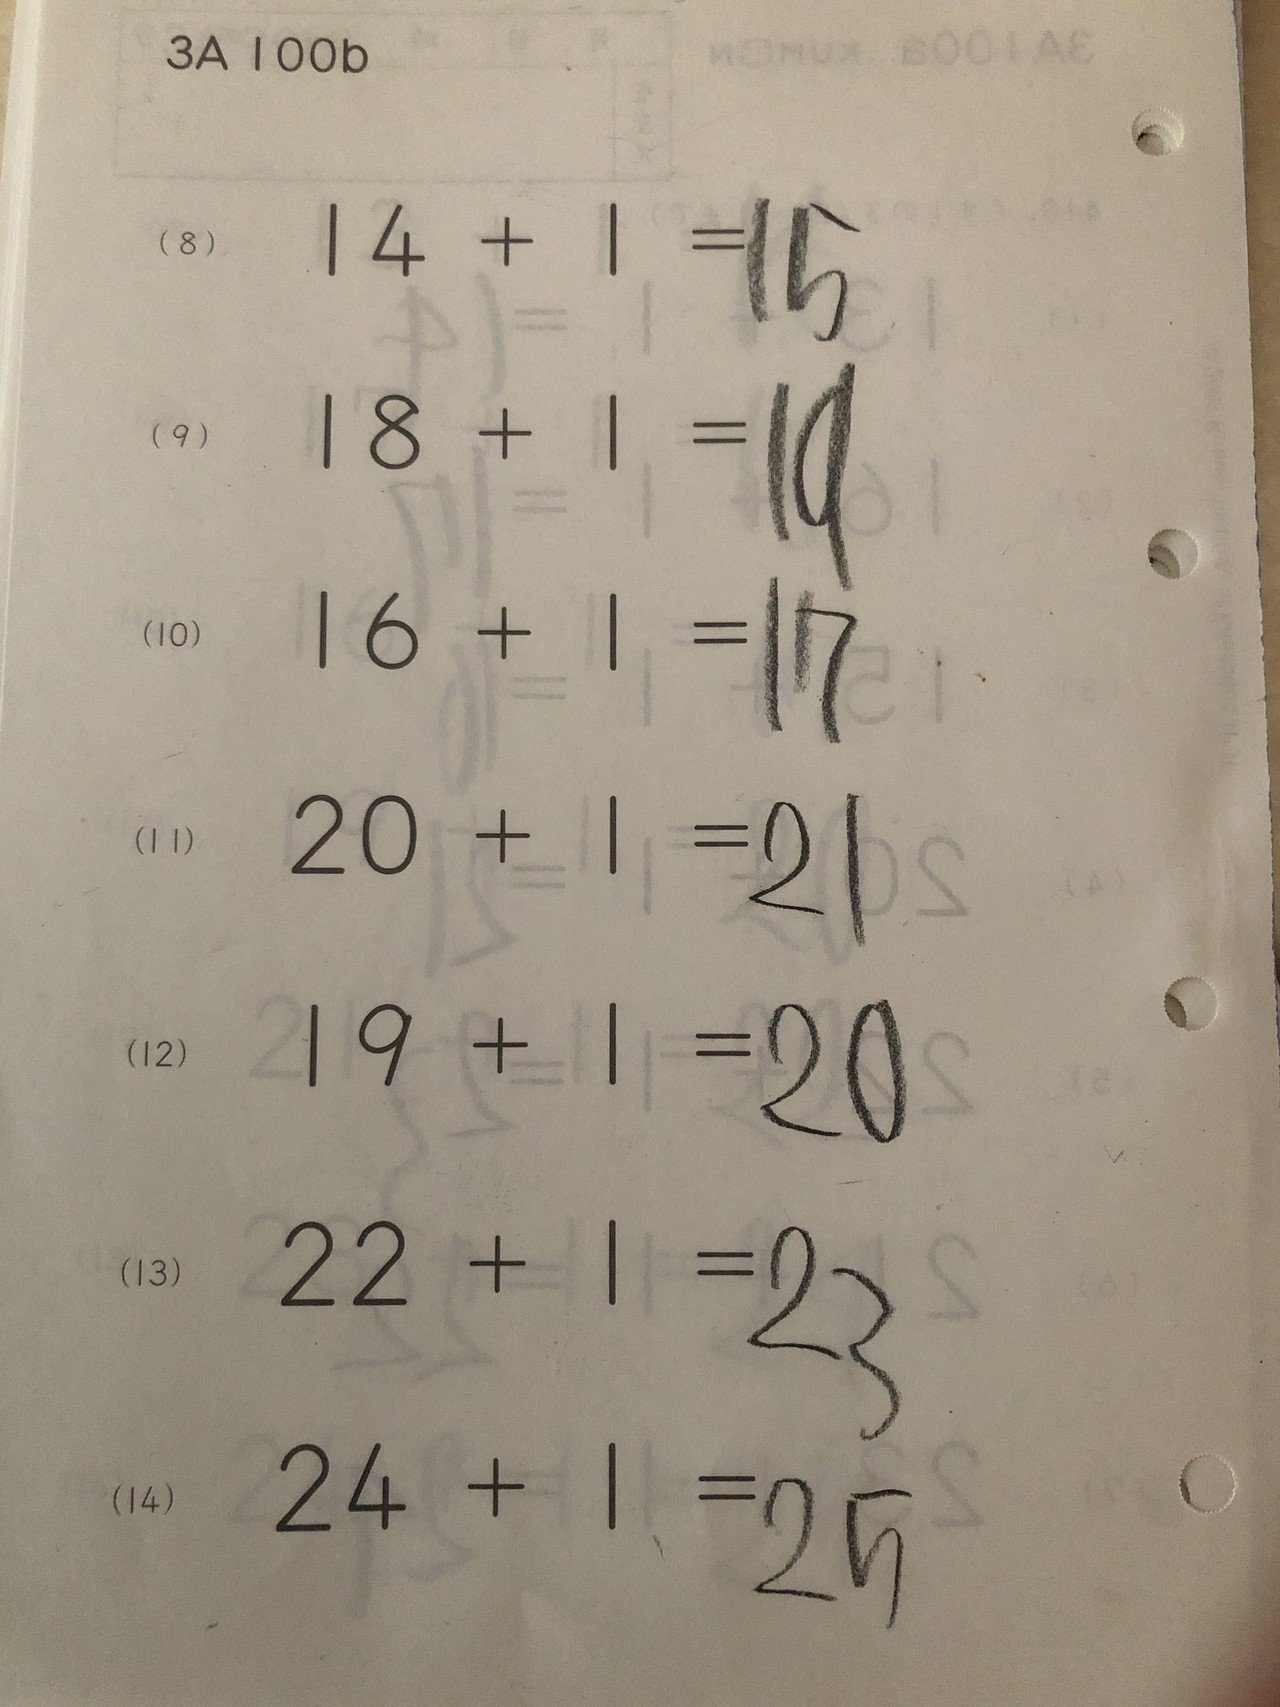 3A 100b
(8) 14 + 1 = 15
(9) 18 + 1 = 19
(10) 16 + 1 = 17
(11) 20 + 1 = 21
(12) 19 + 1 = 20
(13) 22 + 1 = 23
(14) 24 + 1 = 25